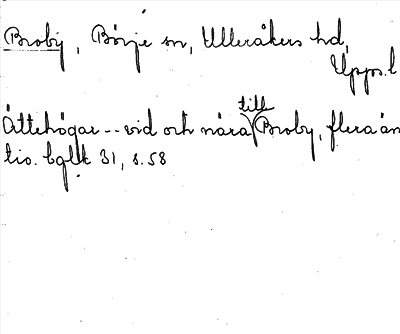 Broby, Börje sn, Ulleråkers hd,
Upps. l
Ättehögar -- vid och nära till Broby, flera än
tio. bqlk 31, s. 58